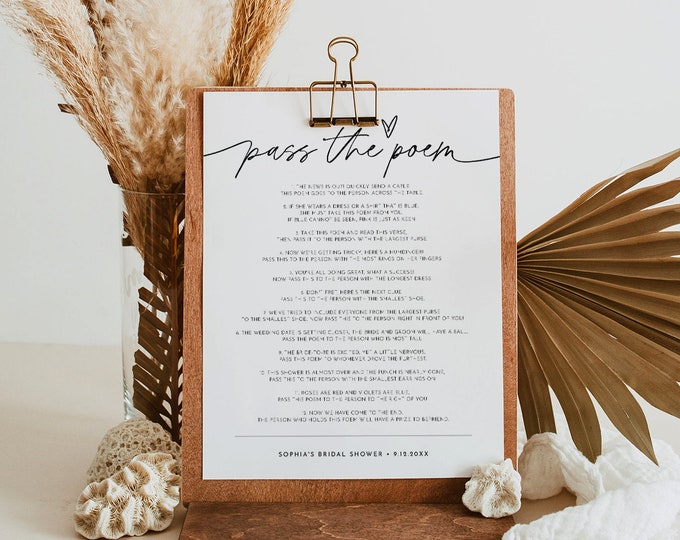 pass the poem
THE NEWS IS OUT! QUICKLY SEND A CABLE
THIS POEM GOES TO THE PERSON ACROSS THE TABLE.
2. IF SHE WEARS A DRESS OR A SHIRT THAT IS BLUE,
SHE MUST TAKE THIS POEM FROM YOU.
IF BLUE CANNOT BE SEEN, PINK IS JUST AS KEEN.
3. TAKE THIS POEM AND READ THIS VERSE,
THEN PASS IT TO THE PERSON WITH THE LARGEST PURSE.
4. NOW WE'RE GETTING TRICKY, HERE'S A HUMDINGER!
PASS THIS TO THE PERSON WITH THE MOST RINGS ON HER FINGERS
5. YOU'RE ALL DOING GREAT, WHAT A SUCCESS!
NOW PASS THIS TO THE PERSON WITH THE LONGEST DRESS
6. DON'T FRET, HERE'S THE NEXT CLUE.
PASS THIS TO THE PERSON WITH THE SMALLEST SHOE.
7. WE'VE TRIED TO INCLUDE EVERYONE FROM THE LARGEST PURSE
TO THE SMALLEST SHOE. NOW PASS THIS TO THE PERSON RIGHT IN FRONT OF YOU!
8. THE WEDDING DATE IS GETTING CLOSER, THE BRIDE AND GROOM WILL HAVE A BALL...
PASS THE POEM TO THE PERSON WHO IS MOST TALL
9. THE BRIDE-TO-BE IS EXCITED, YET A LITTLE NERVOUS,
PASS THIS POEM TO WHOMEVER DROVE THE FURTHEST.
10. THIS SHOWER IS ALMOST OVER AND THE PUNCH IS NEARLY GONE,
PASS THIS TO THE PERSON WITH THE SMALLEST EARRINGS ON
11. ROSES ARE RED AND VIOLETS ARE BLUE,
PASS THIS POEM TO THE PERSON TO THE RIGHT OF YOU
12. NOW WE HAVE COME TO THE END,
THE PERSON WHO HOLDS THIS POEM WILL HAVE A PRIZE TO BEFRIEND.
SOPHIA'S BRIDAL SHOWER • 9.12.20XX